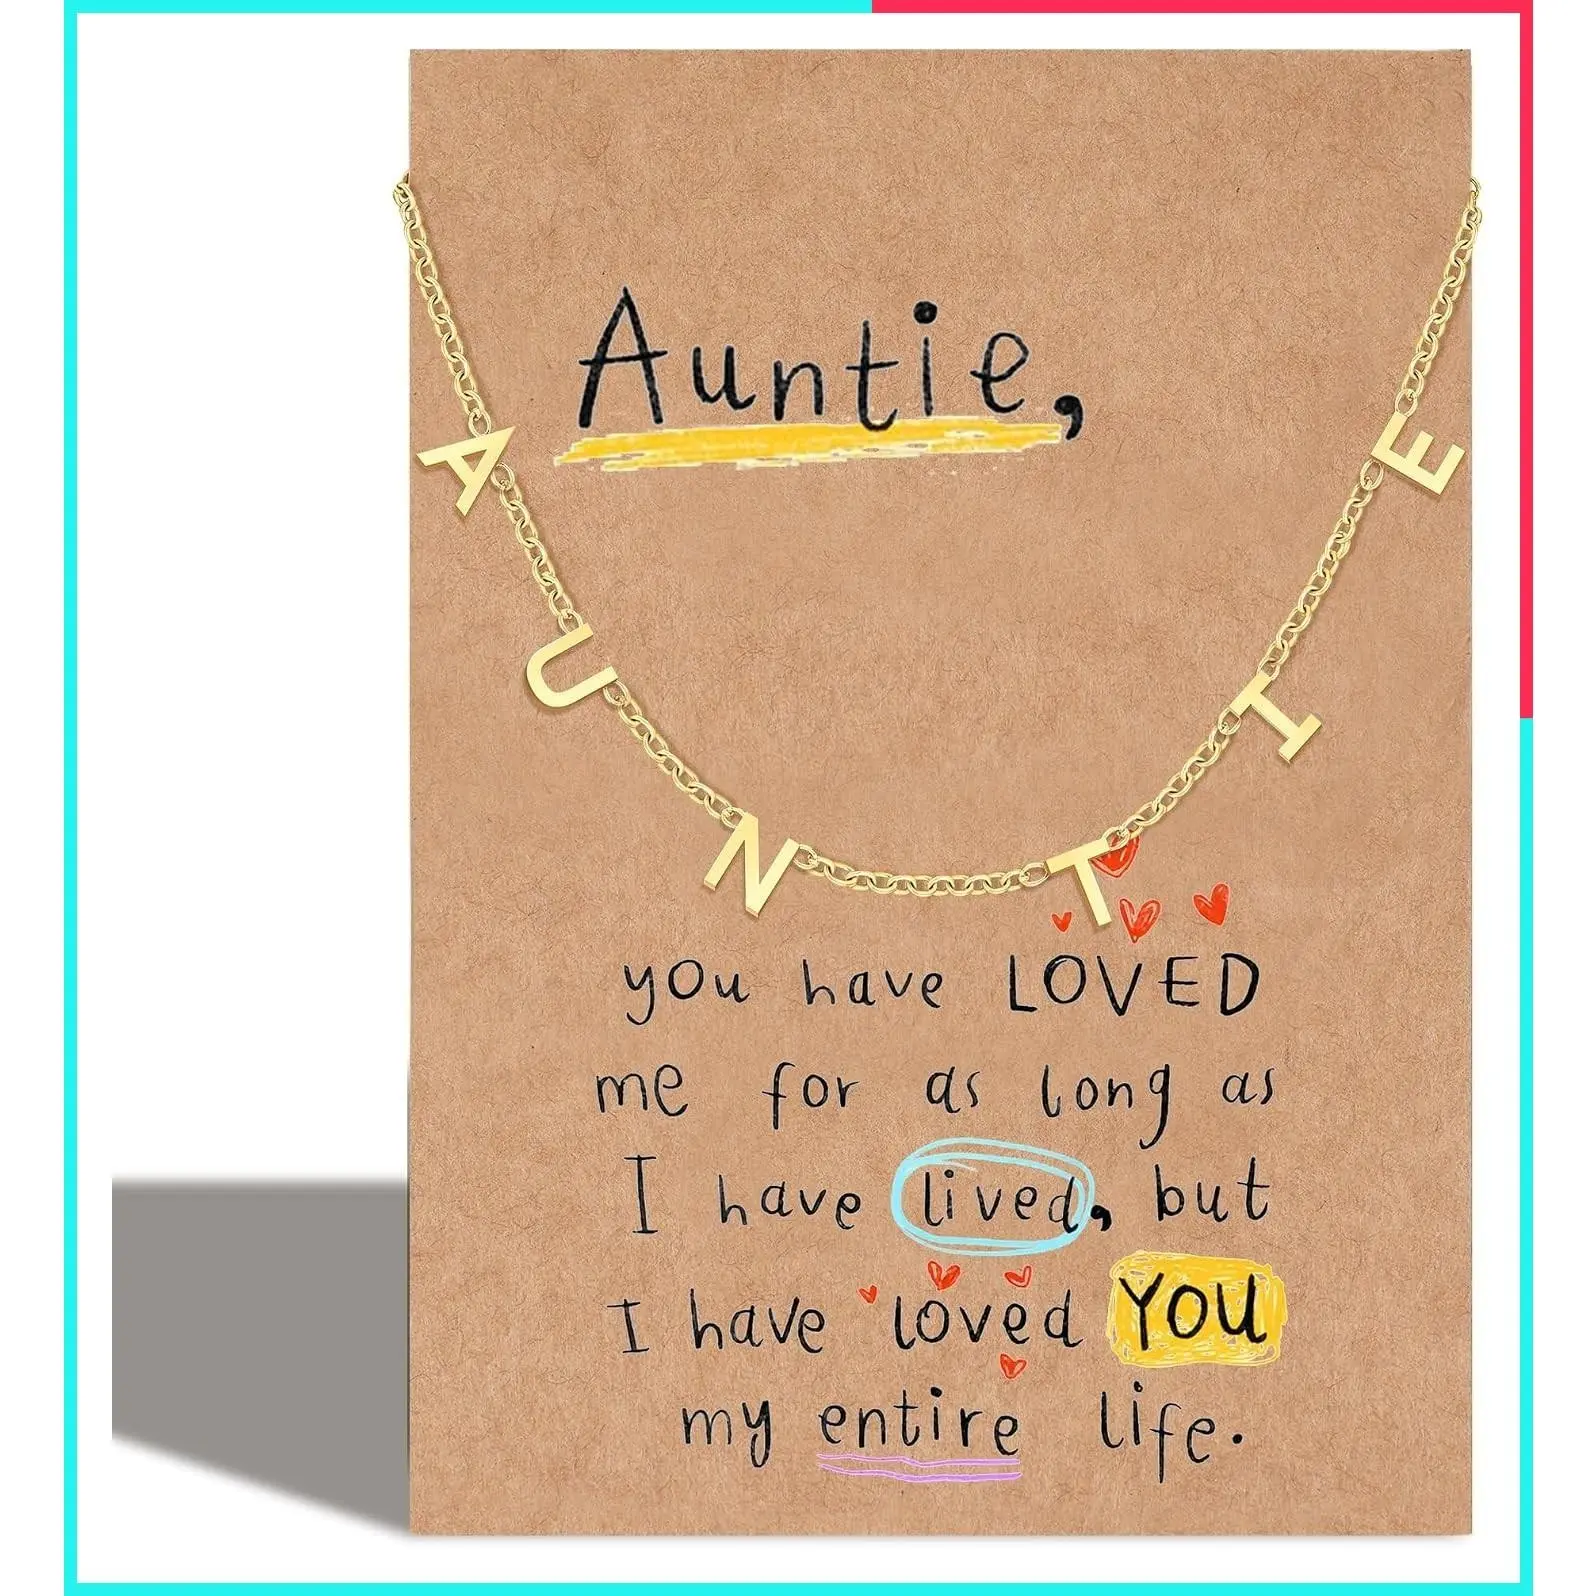 Auntie,
A U N T I E
you have LOVED
me for as long as
I have lived, but
I have loved YOU
my entire life.